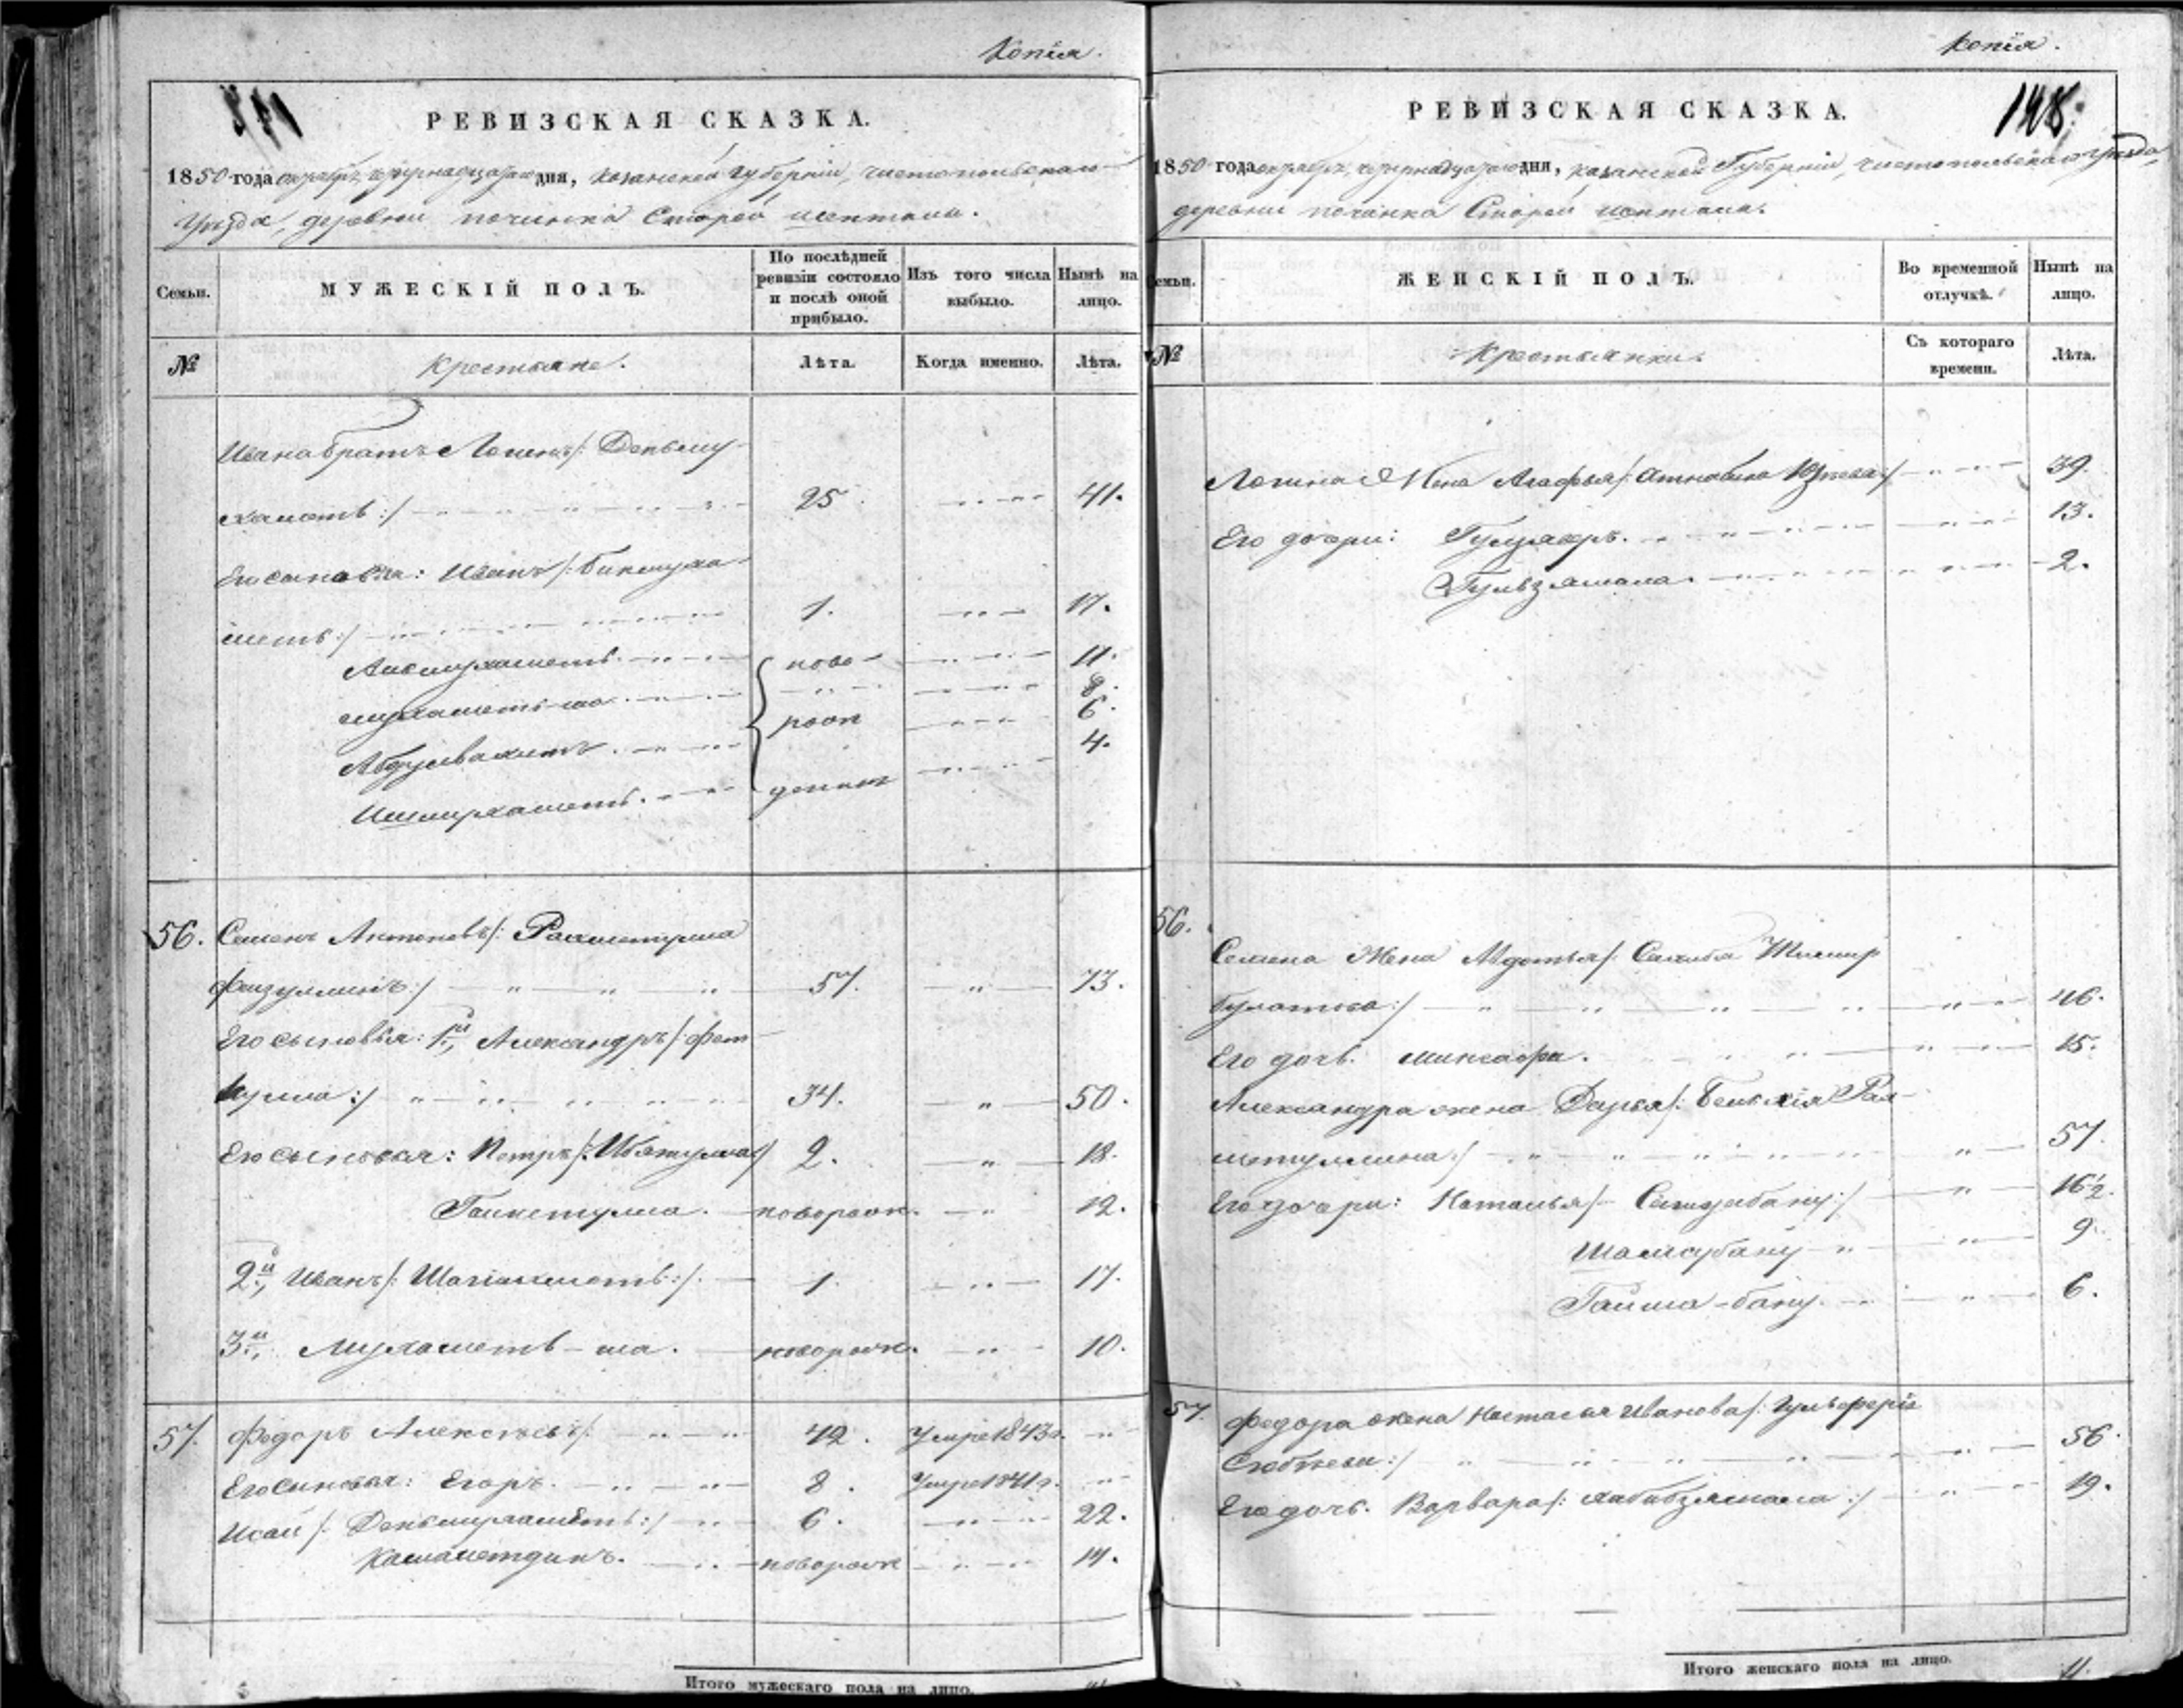 Копія.
РЕВИЗСКАЯ СКАЗКА.
1850 года октября четырнадцатого дня, Казанской Губерніи, Чистопольскаго
Уѣзда, деревни починка Старой
Семьи.
МУЖЕСКІЙ ПОЛЪ.
По послѣдней ревизіи состояло и послѣ оной прибыло.
Изъ того числа выбыло.
Нынѣ на лицо.
№
Крестьяне.
Лѣта.
Когда именно.
Лѣта.
Ивана братъ Логинъ /: Деньму-
хаметь :/ 25 41.
Его сыновья: Иванъ /: Бикмуха-
меть :/ 1. 17.
ново- 11.
Мухаметь-ша 8.
Абдулвахитъ рож 6.
Ишмухаметь. денъ 4.
56. Семенъ Антоновъ /: Рахметулла
Фейзуллинъ :/ 57. 73.
Его сыновья: 1й, Александръ /: Фет-
кулла :/ 34. 50.
Его сыновья: Петръ /: Ибятулла :/ 2. 18.
новорожд. 12.
2й, Иванъ /: Шагіахметь :/. 1. 17.
3й, Мухаметь-ша. новорожд. 10.
57. Федоръ Алексѣевъ /: 42. Умре 1843г.
Его сыновья: Егоръ. 8. Умре 1841г.
Исай /: Деньмухаметь :/ 6. 22.
Камаметдинъ. новорожд 14.
Итого мужескаго пола на лицо.
Копія.
148.
РЕВИЗСКАЯ СКАЗКА.
1850 года октября, четырнадцатого дня, Казанской Губерніи, Чистопольскаго Уѣзда,
деревни починка Старой
Семьи.
ЖЕНСКІЙ ПОЛЪ.
Во временной отлучкѣ.
Нынѣ на лицо.
№
Крестьянки.
Съ котораго времени.
Лѣта.
Логина Жена Агафья /: :/ 39.
Его дочери: 13.
Гульзямала. 2.
56.
Семена Жена Авдотья /: Салиба Тимир
булатова :/ 46.
Его дочь. Минсафа. 15.
Александра жена Дарья /: Рах-
метуллина :/ 57.
Его дочери: Наталья /: :/ 16½.
Шамсубану 9.
Гайша-бану. 6.
57. Федора жена Настасья Иванова /:
:/ 56.
Его дочь. Варвара /: Хабибзямала :/ 19.
Итого женскаго пола на лицо. 11.